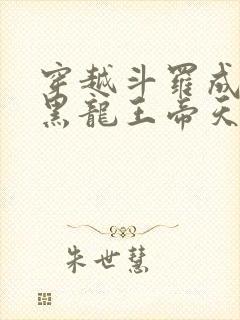 穿越斗羅成
黑龍王帝天
朱世慧